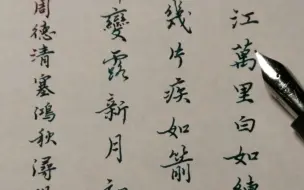 江萬里白如練
幾片疾如箭
變露新月初
周德清塞鴻秋潯